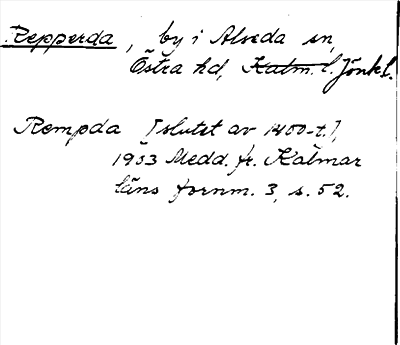 Repperda, by i Alseda sn,
Östra hd, Kalm. l. Jönk l.
Rempda [slutet av 1400-t.],
1903 Medd. fr. Kalmar
läns fornm. 3, s. 52.